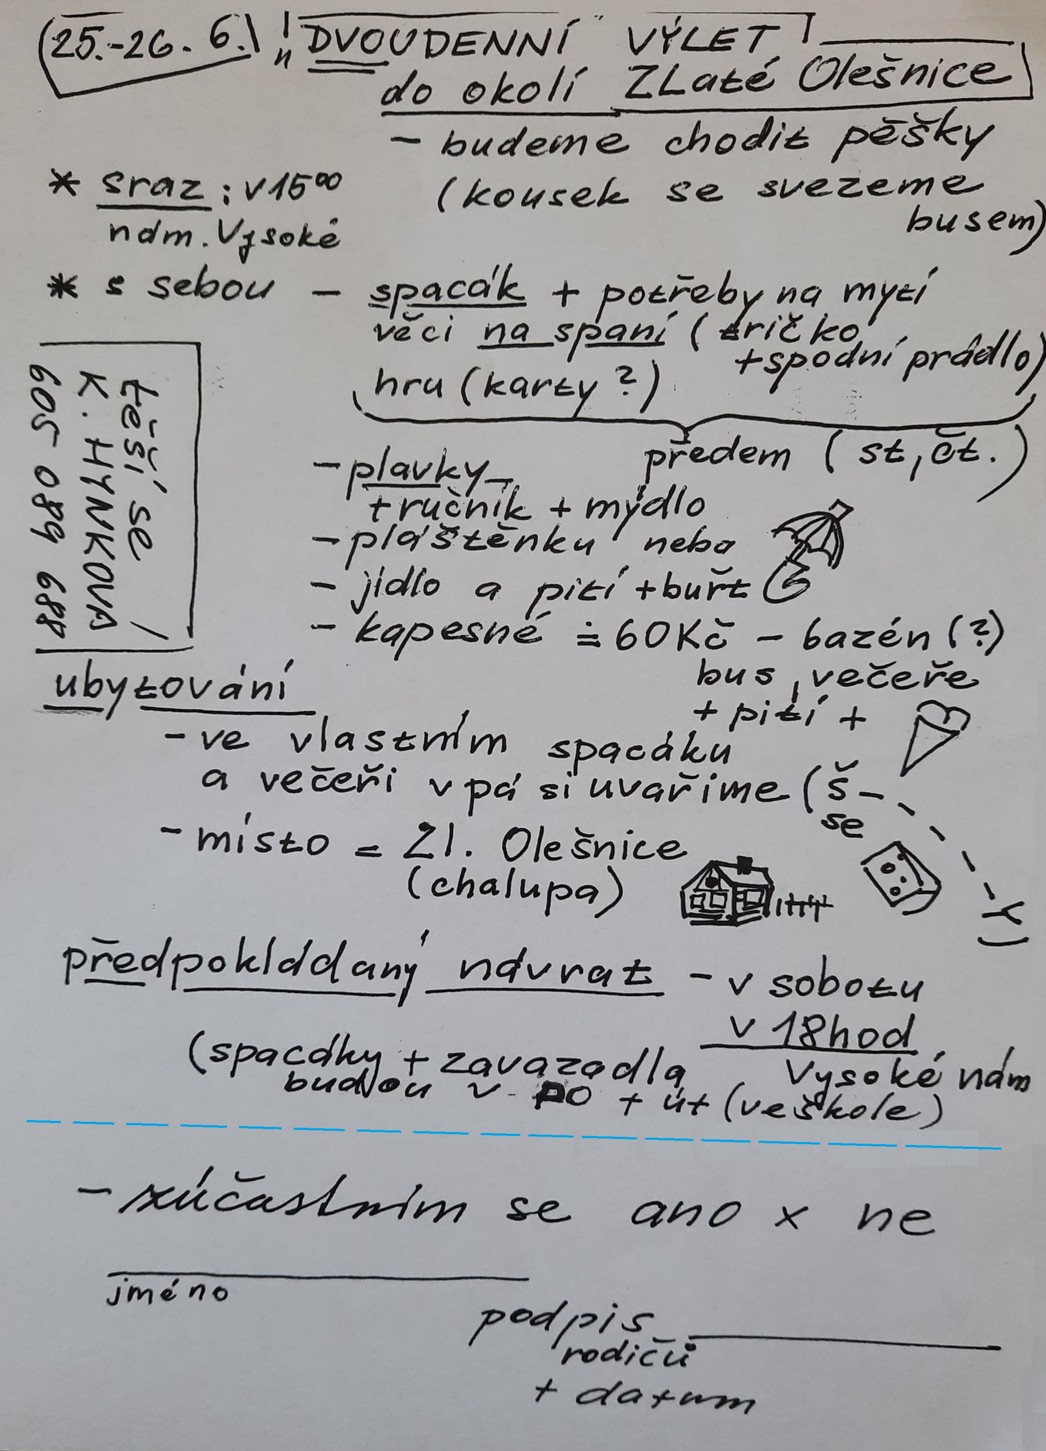 25.-26. 6. ! DVOUDENNÍ VÝLET
do okolí ZLaté Olešnice
- budeme chodit pěšky
(kousek se svezeme
busem)
* sraz: v 15⁰⁰
nám. Vysoké
* s sebou - spacák + potřeby na mytí
věci na spaní (tričko
+ spodní prádlo)
hru (karty?)
předem (st, čt.)
- plavky
+ ručník + mýdlo
- pláštěnku nebo
- jídlo a pití + buřt
- kapesné ≐ 60 Kč - bazén (?)
bus, večeře
+ pití +
těší se
K. HYNKOVÁ
605 089 688
ubytování
- ve vlastním spacáku
a večeři v pá si uvaříme (š-
se
- místo = Zl. Olešnice
(chalupa)
předpokládaný návrat - v sobotu
v 18hod
Vysoké nám
(spacáky + zavazadla
budou v PO + út (ve škole)
- zúčastním se ano x ne
jméno
podpis
rodičů
+ datum